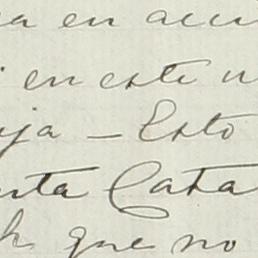 a en acu
en este u
uja — Esto
nta Cata
que no